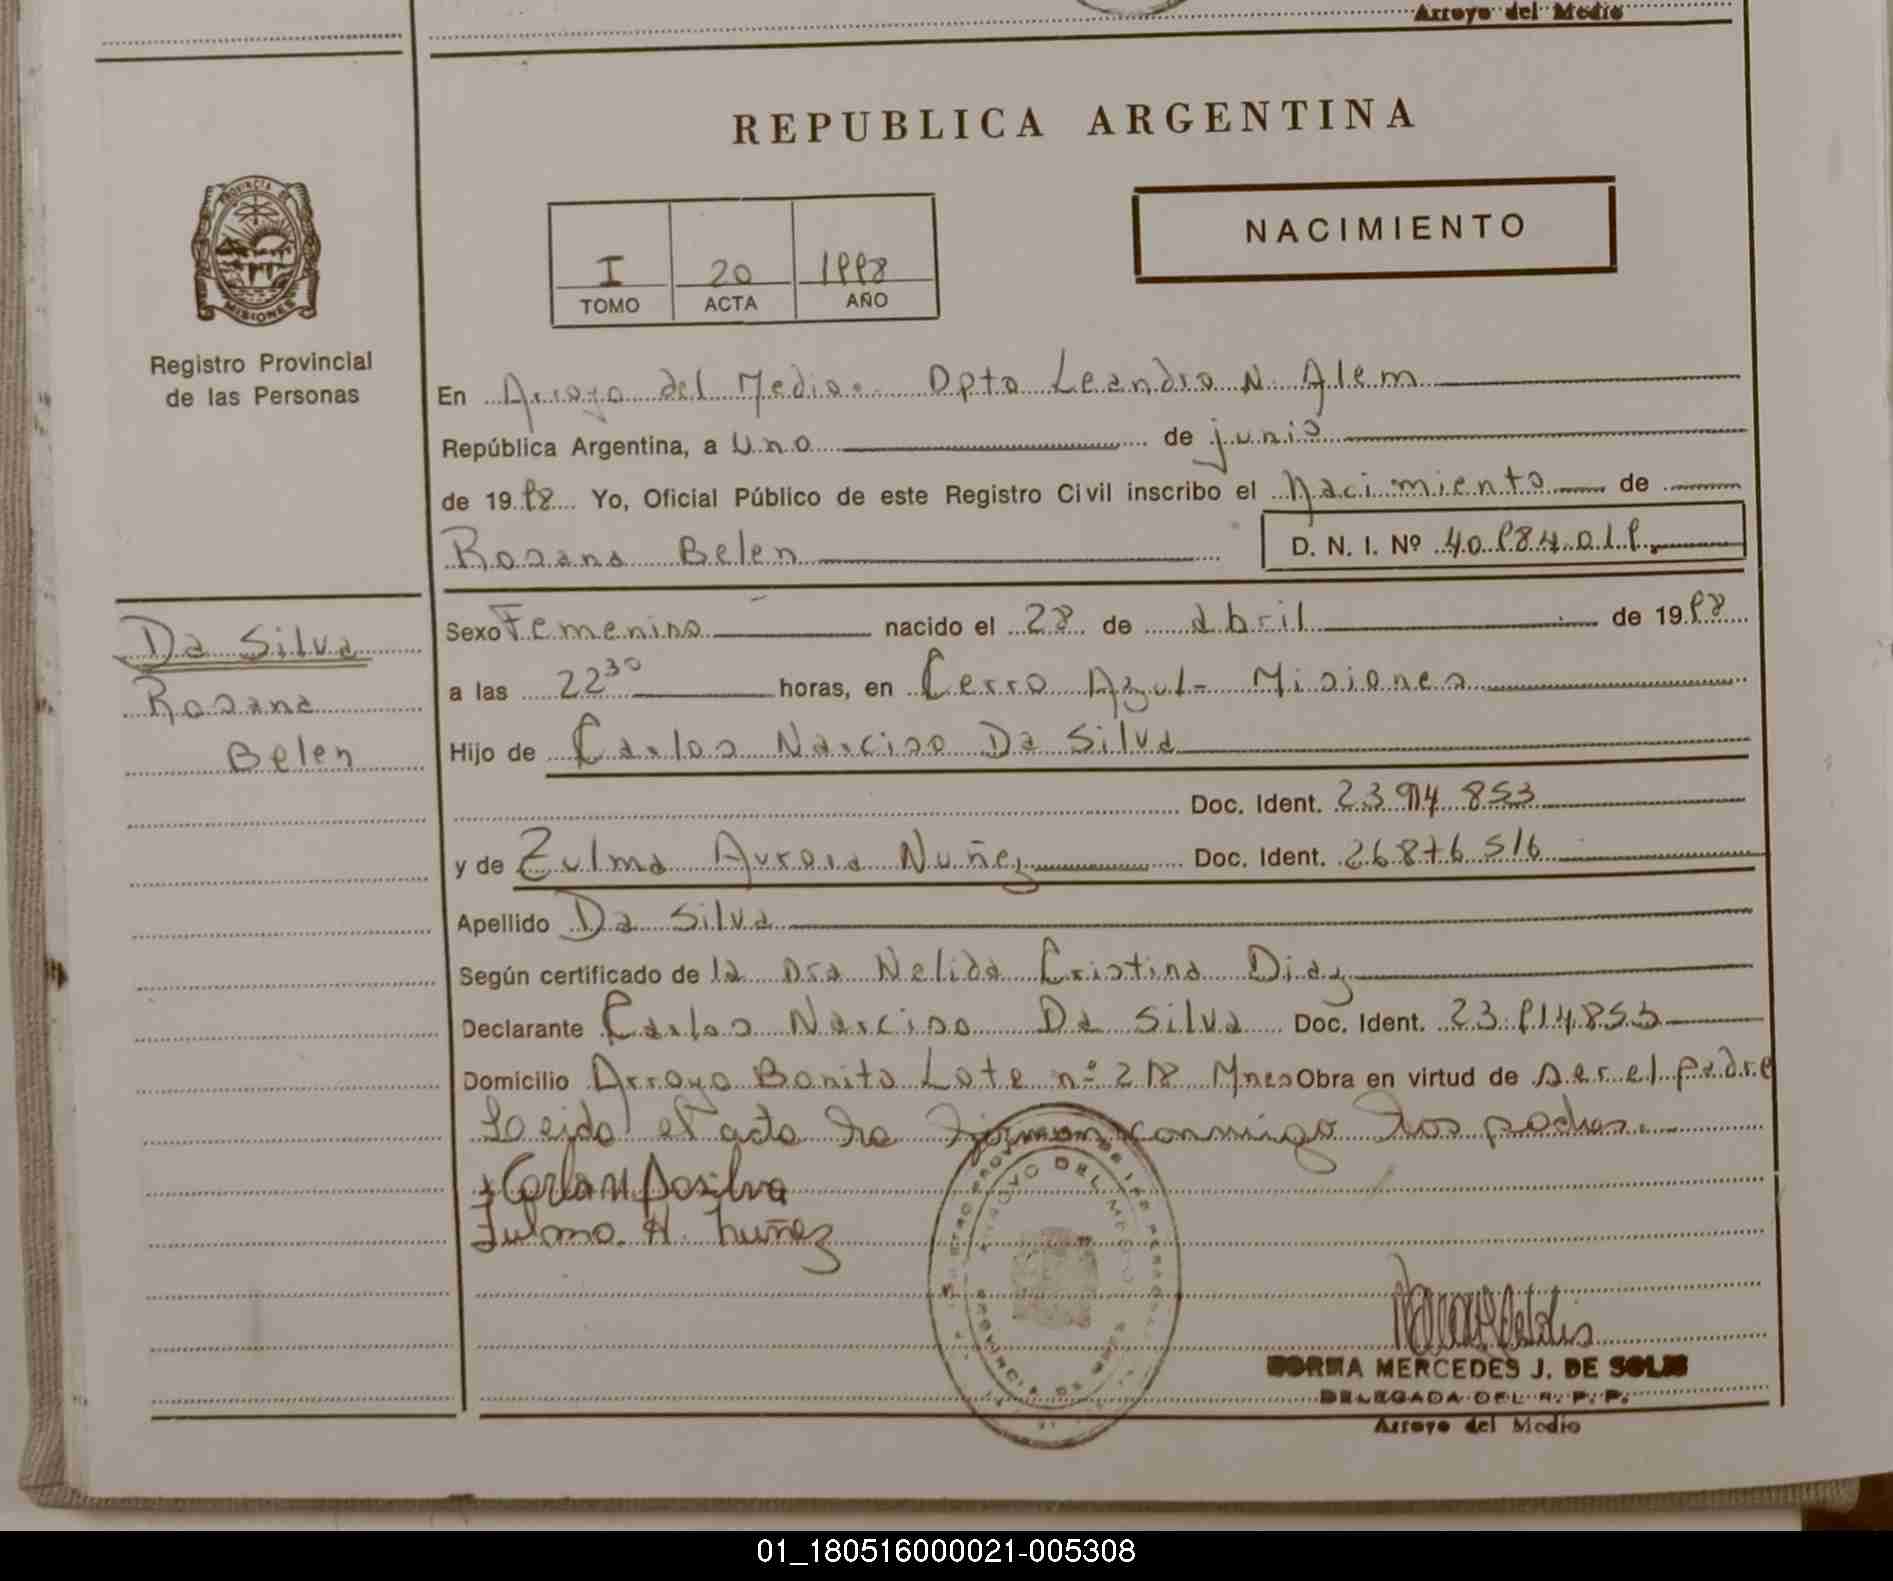 Arroyo del Medio
REPUBLICA ARGENTINA
NACIMIENTO
I 20 1998
TOMO ACTA AÑO
PROVINCIA DE MISIONES
Registro Provincial
de las Personas
En Arroyo del Medio. Dpto Leandro N. Alem
República Argentina, a Uno de junio
de 1998 Yo, Oficial Público de este Registro Civil inscribo el Nacimiento de
Rosana Belen D. N. I. Nº 40.984.019.
Da Silva
Rosana
Belen
Sexo Femenino nacido el 28 de abril de 1998
a las 22³⁰ horas, en Cerro Azul - Misiones
Hijo de Carlos Narciso Da Silva
Doc. Ident. 23 914 853
y de Zulma Aurora Nuñez Doc. Ident. 26876516
Apellido Da Silva
Según certificado de la Dra Nelida Cristina Diaz
Declarante Carlos Narciso Da Silva Doc. Ident. 23.914.853
Domicilio Arroyo Bonito Lote nº 218 Mnes Obra en virtud de ser el padre
Leido el acta la firman conmigo los padres.
Carlos N Dasilva
Zulma A. Nuñez
ARROYO DEL MEDIO
PROVINCIA DE
NORMA MERCEDES J. DE SOLIS
DELEGADA DEL R. P. P.
Arroyo del Medio
01_180516000021-005308